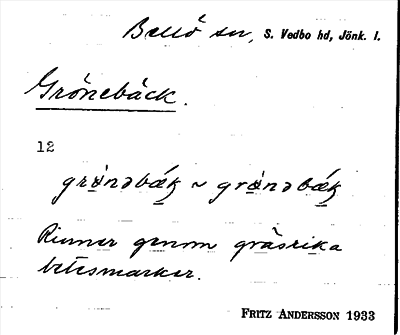 Bellö sn, S. Vedbo hd, Jönk. l.
Grönebäck.
12
grø̀nəbǽk ~ grø̀nəbǽk
Rinner genom gräsrika
betesmarker.
FRITZ ANDERSSON 1933